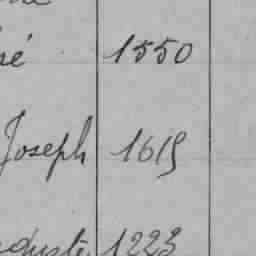 sé 1550
Joseph 1619
guste 1223